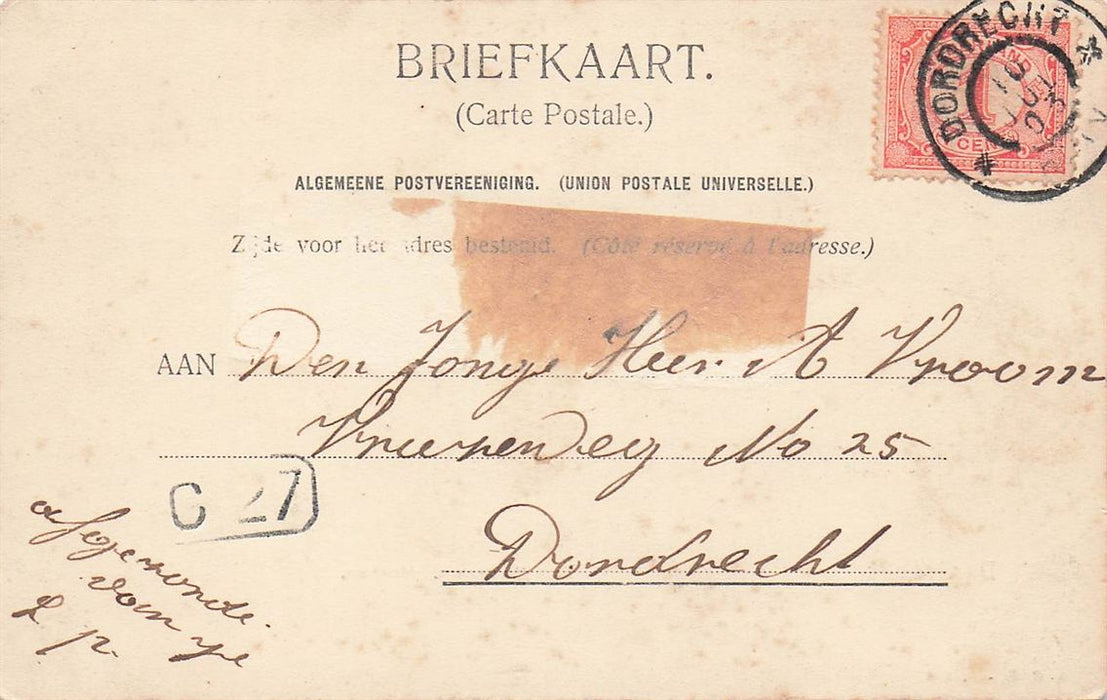 BRIEFKAART.
(Carte Postale.)
ALGEMEENE POSTVEREENIGING. (UNION POSTALE UNIVERSELLE.)
Zijde voor het adres bestemd. (Côté réservé à l'adresse.)
DORDRECHT
CENT
AAN Den Jonge Heer A Vroom
Vriezenweg No 25
Dordrecht
C 27
afgezonde
van
L p.